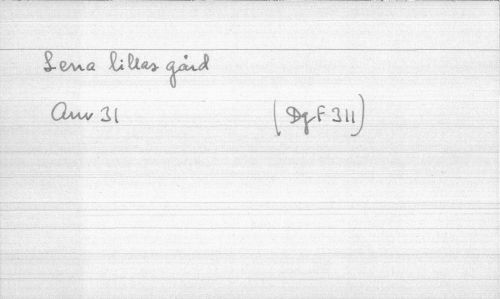 Lena lillas gård
Anv 31 (DgF 311)